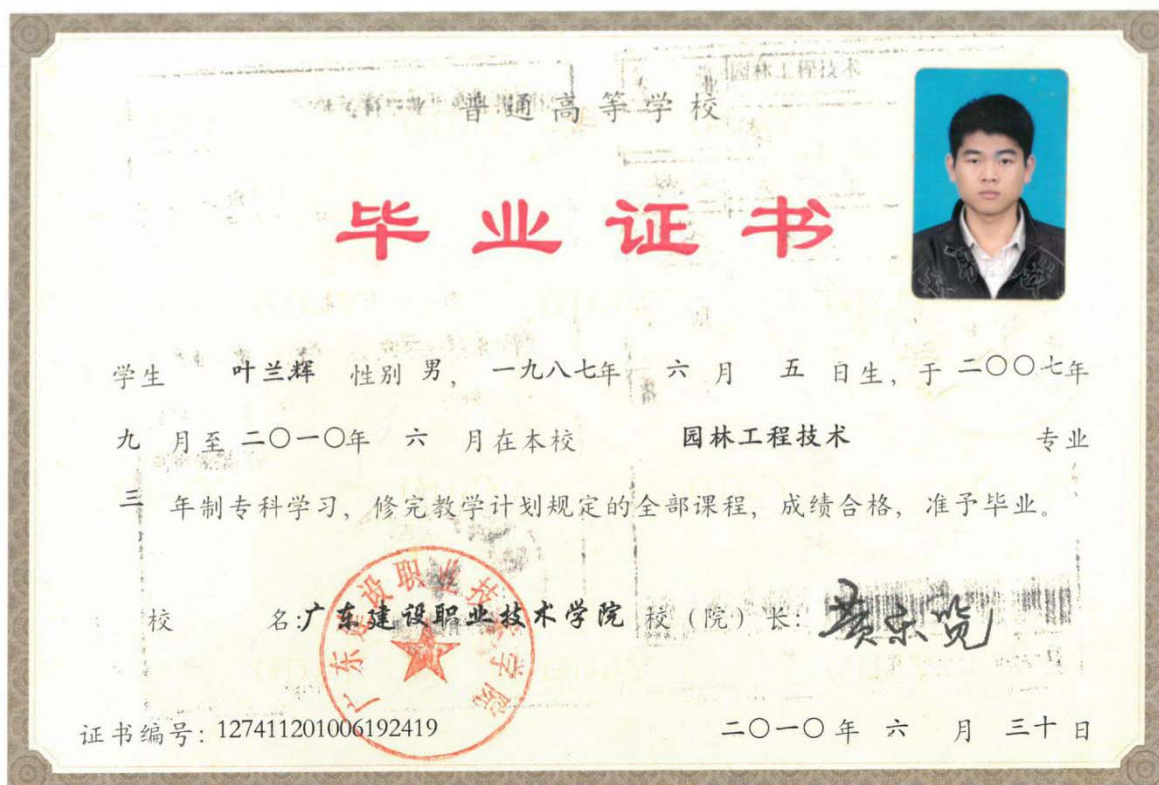 园林工程技术
普通高等学校
毕业证书
学生 叶兰辉 性别 男， 一九八七年 六 月 五 日生，于 二〇〇七年
九 月至 二〇一〇年 六 月在本校 园林工程技术 专业
三 年制专科学习，修完教学计划规定的全部课程，成绩合格，准予毕业。
校 名:广东建设职业技术学院 校（院）长:
广东建设职业技术学院
证书编号: 127411201006192419 二〇一〇年 六 月 三十 日